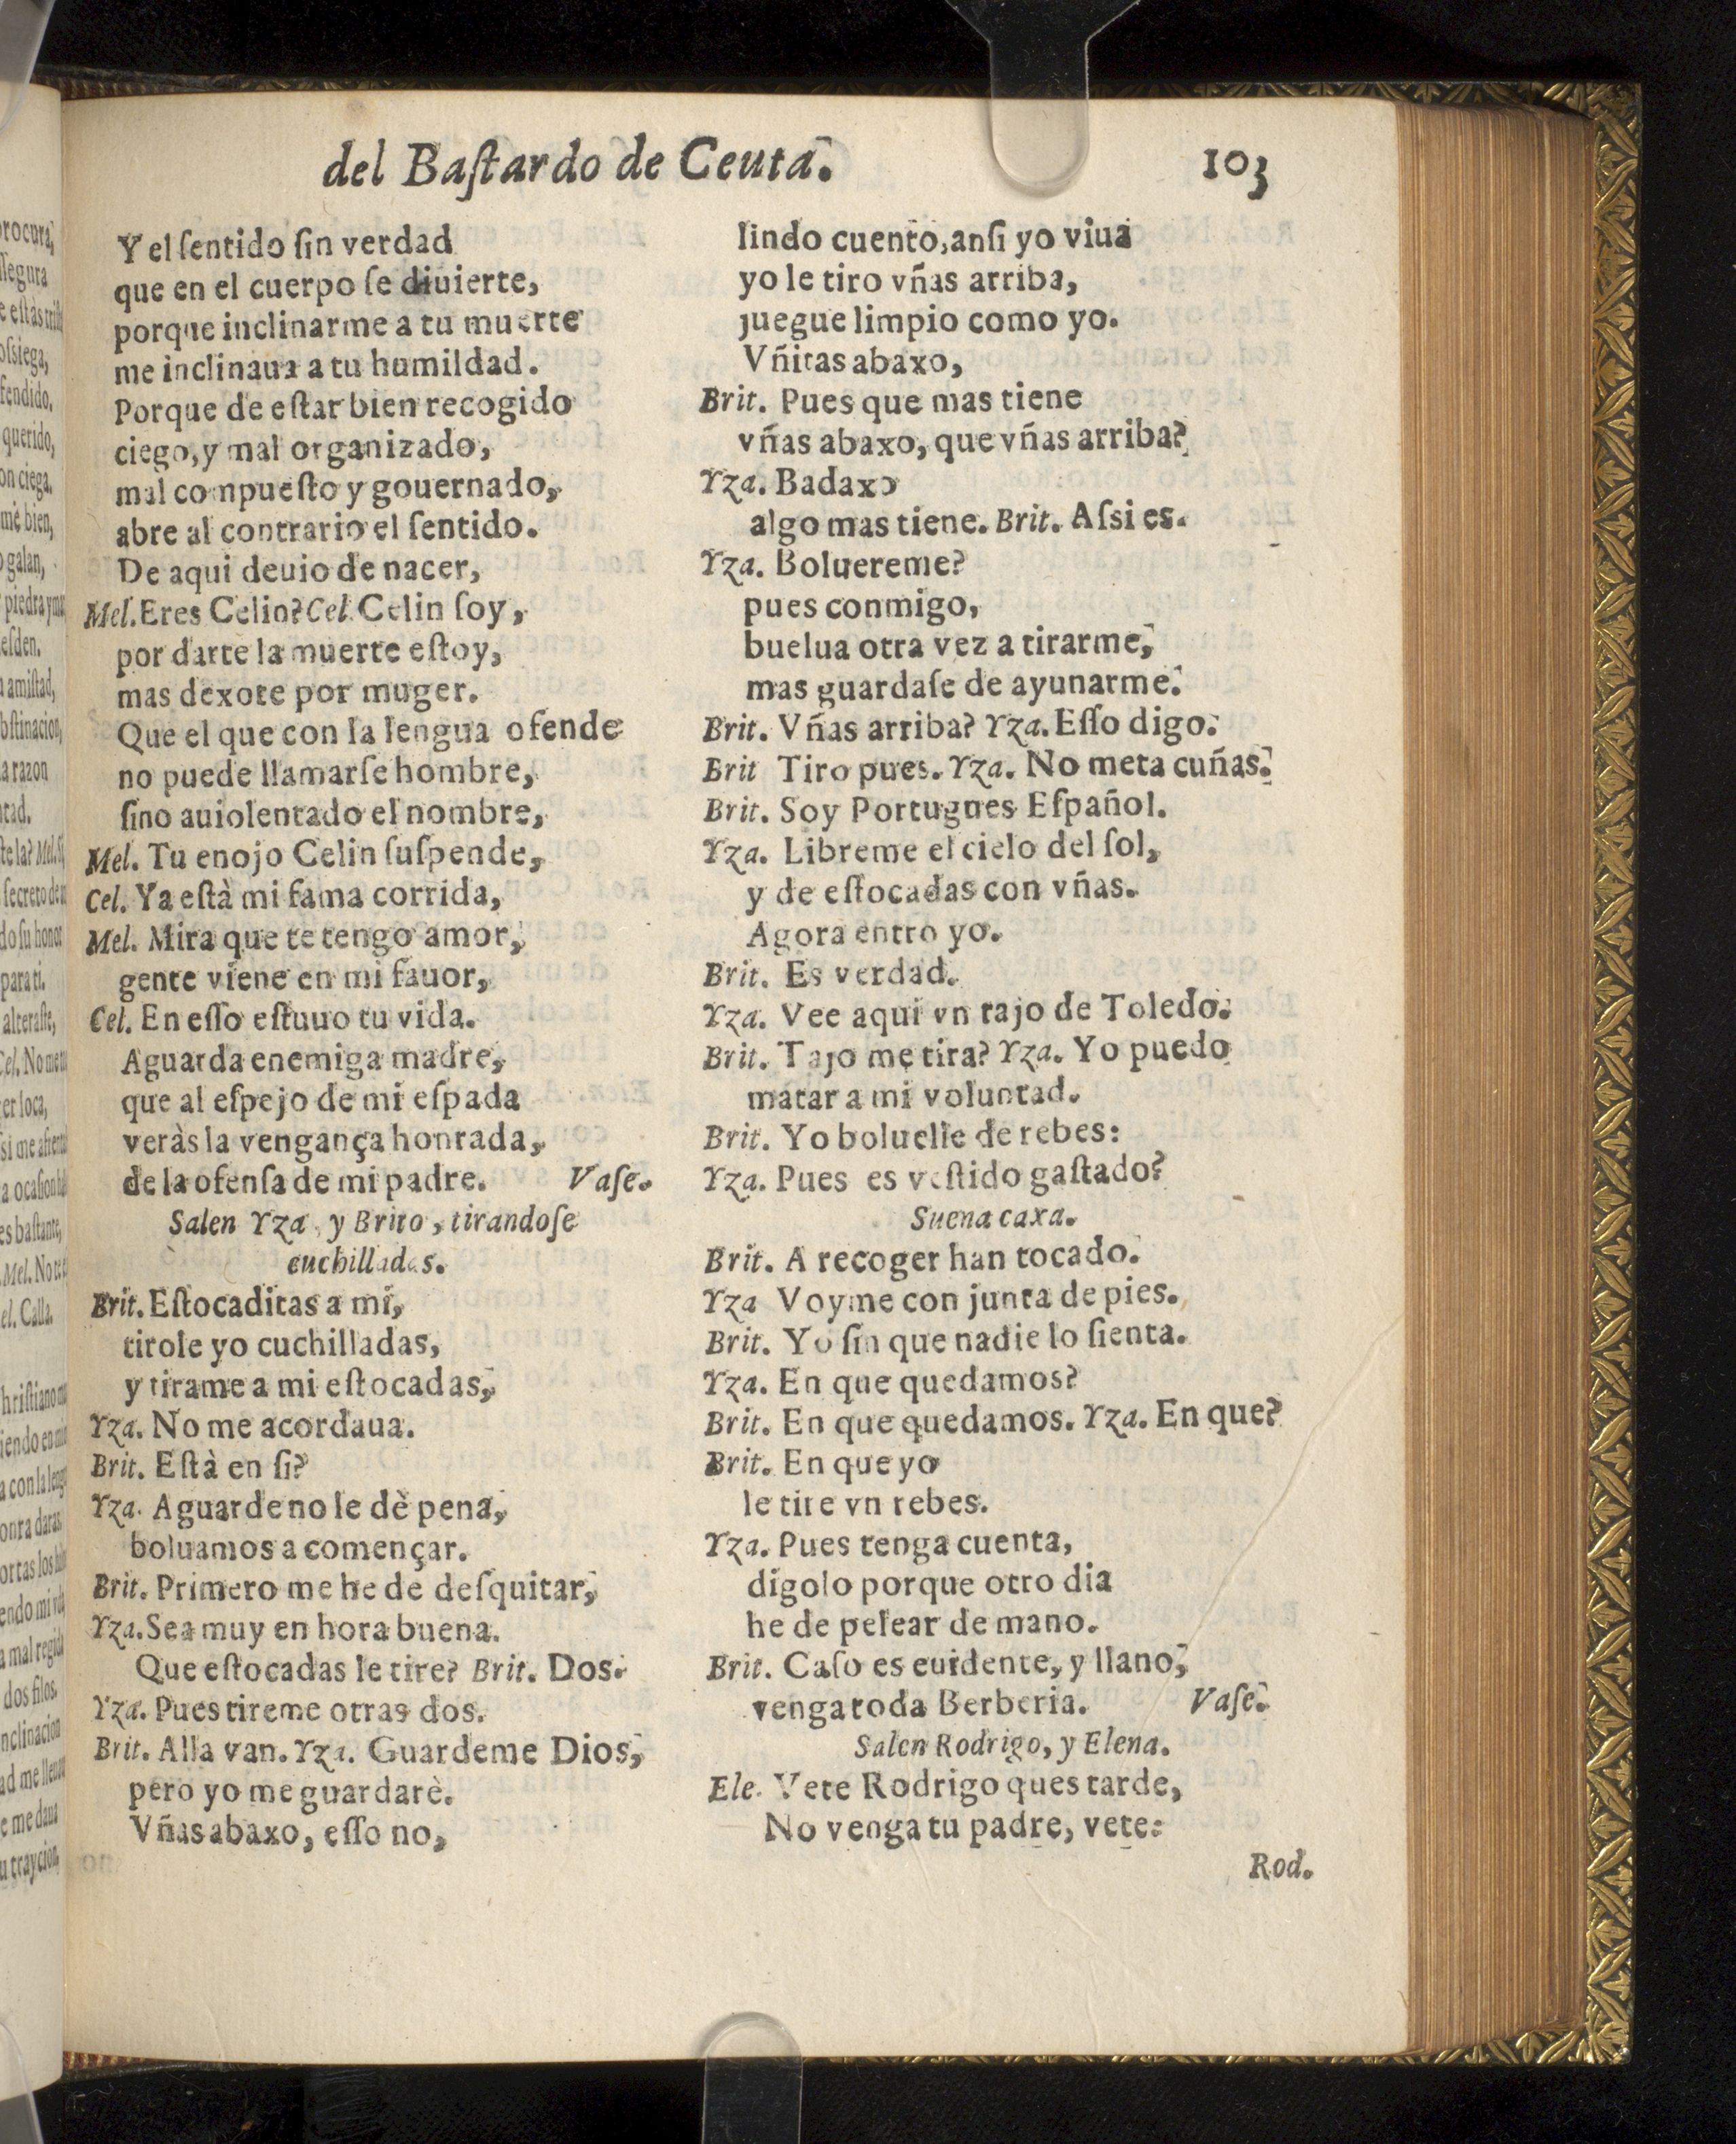 del Baſtardo de Ceuta.
103
Y el ſentido ſin verdad
que en el cuerpo ſe diuierte,
porque inclinarme a tu muerte
me inclinaua a tu humildad.
Porque de eſtar bien recogido
ciego, y mal organizado,
mal compueſto y gouernado,
abre al contrario el ſentido.
De aqui deuio de nacer,
Mel. Eres Celin? Cel. Celin ſoy,
por darte la muerte eſtoy,
mas dexote por muger.
Que el que con la lengua ofende
no puede llamarſe hombre,
ſino auiolentado el nombre,
Mel. Tu enojo Celin ſuſpende,
Cel. Ya eſtà mi fama corrida,
Mel. Mira que te tengo amor,
gente viene en mi fauor,
Cel. En eſſo eſtuuo tu vida.
Aguarda enemiga madre,
que al eſpejo de mi eſpada
veràs la vengança honrada,
de la ofenſa de mi padre. Vaſe.
Salen Yza, y Brito, tirandoſe
cuchilladas.
Brit. Eſtocaditas a mi,
tirole yo cuchilladas,
y tirame a mi eſtocadas,
Yza. No me acordaua.
Brit. Eſtà en ſi?
Yza. Aguarde no le dè pena,
boluamos a començar.
Brit. Primero me he de deſquitar,
Yza. Sea muy en hora buena.
Que eſtocadas le tire? Brit. Dos.
Yza. Pues tireme otras dos.
Brit. Alla van. Yza. Guardeme Dios,
pero yo me guardarè.
Vñas abaxo, eſſo no,
lindo cuento, anſi yo viua
yo le tiro vñas arriba,
juegue limpio como yo.
Vñitas abaxo,
Brit. Pues que mas tiene
vñas abaxo, que vñas arriba?
Yza. Badaxo
algo mas tiene. Brit. Aſsi es.
Yza. Boluereme?
pues conmigo,
buelua otra vez a tirarme,
mas guardaſe de ayunarme.
Brit. Vñas arriba? Yza. Eſſo digo.
Brit Tiro pues. Yza. No meta cuñas.
Brit. Soy Portugues Eſpañol.
Yza. Libreme el cielo del ſol,
y de eſtocadas con vñas.
Agora entro yo.
Brit. Es verdad.
Yza. Vee aqui vn tajo de Toledo.
Brit. Tajo me tira? Yza. Yo puedo
matar a mi voluntad.
Brit. Yo boluelle de rebes:
Yza. Pues es veſtido gaſtado?
Suena caxa.
Brit. A recoger han tocado.
Yza Voyme con junta de pies.
Brit. Yo ſin que nadie lo ſienta.
Yza. En que quedamos?
Brit. En que quedamos. Yza. En que?
Brit. En que yo
le tire vn rebes.
Yza. Pues tenga cuenta,
digolo porque otro dia
he de pelear de mano.
Brit. Caſo es euidente, y llano,
venga toda Berberia. Vaſe.
Salen Rodrigo, y Elena.
Ele. Vete Rodrigo ques tarde,
No venga tu padre, vete:
Rod.